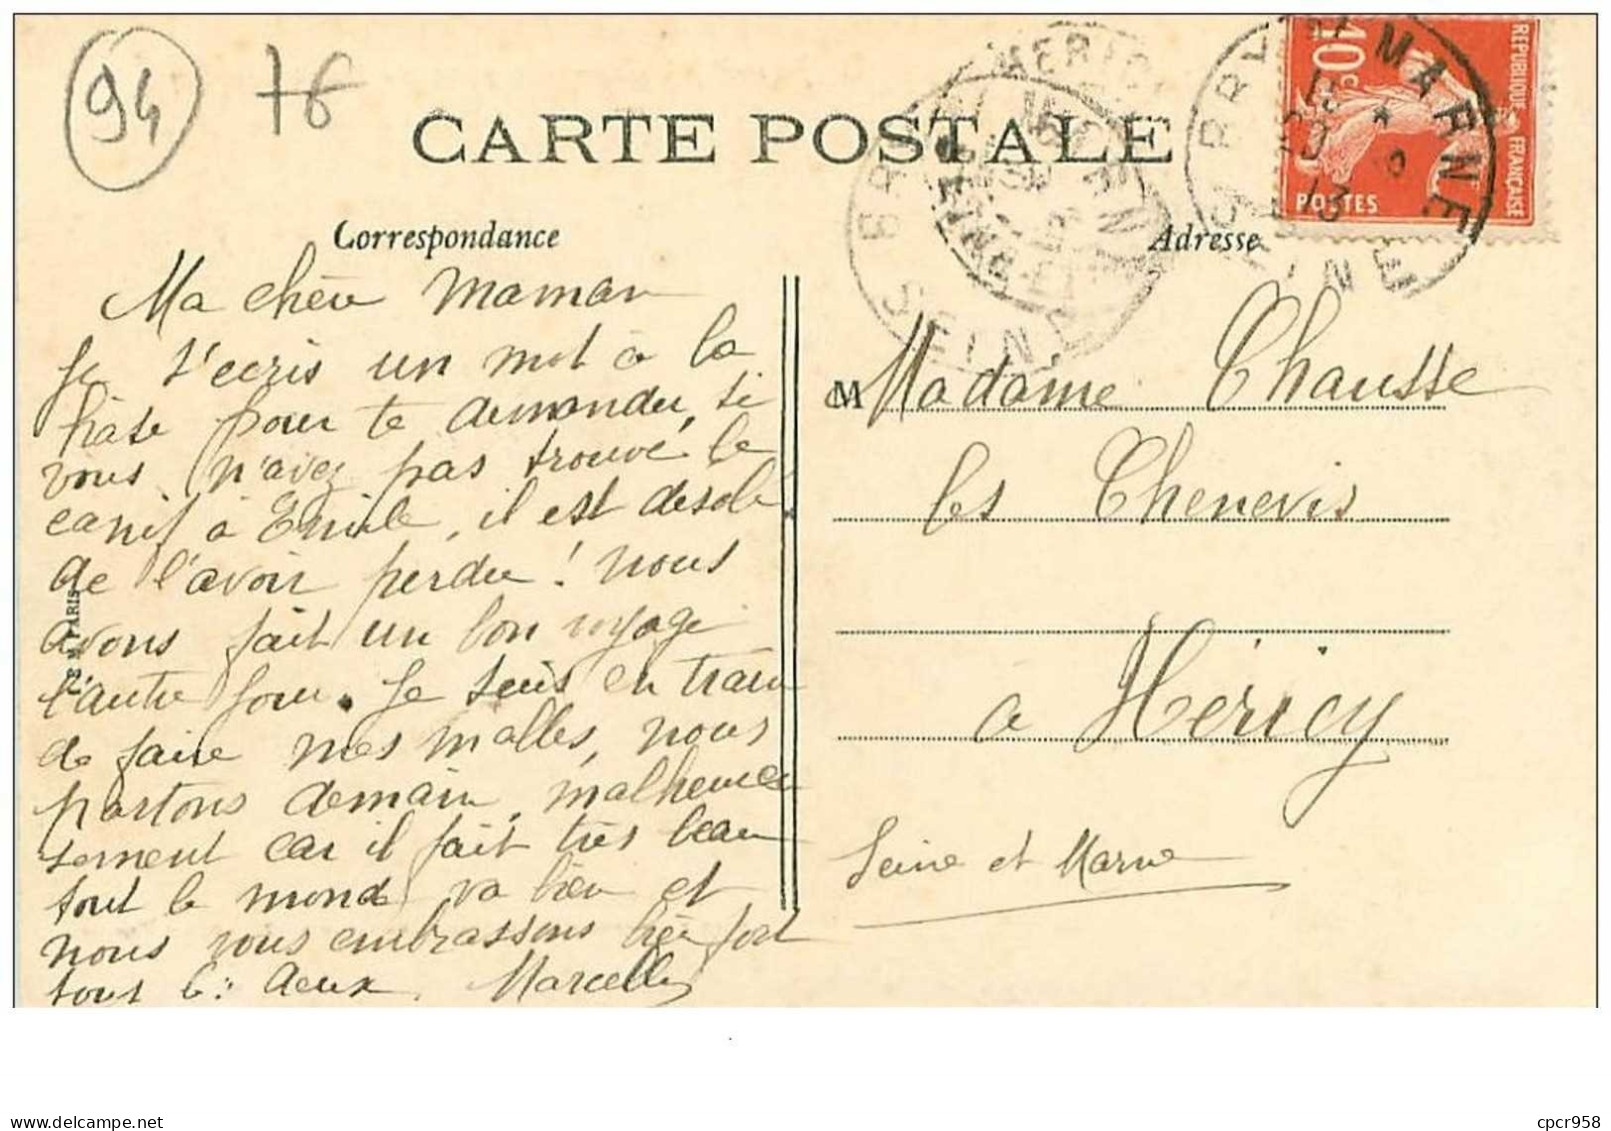 94 76
CARTE POSTALE
REPUBLIQUE FRANÇAISE
10c
POSTES
BRY SUR MARNE
SEINE
HERICY
SEINE-ET-MARNE
Correspondance
Adresse
Ma chère Maman
Je t'ecris un mot à la
hâte pour te demander, si
vous n'avez pas trouvé le
canif à Emile, il est desolé
de l'avoir perdu ! nous
avons fait un bon voyage
l'autre jour. Je suis en train
de faire mes malles, nous
partons demain, malheureu
sement car il fait très beau
tout le monde va bien et
nous vous embrassons bien fort
tous les deux. Marcelle
M Madame Chausse
les Chenevis
a Héricy
Seine et Marne
E M PARIS
cpcr958